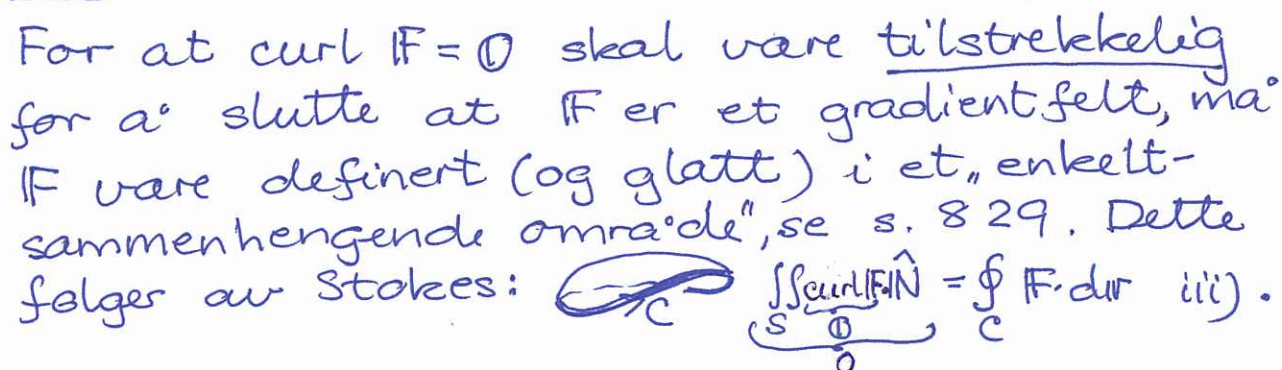 For at curl 𝔽 = 𝟘 skal være tilstrekkelig
for å slutte at 𝔽 er et gradientfelt, må
𝔽 være definert (og glatt) i et „enkelt-
sammenhengende område", se s. 829. Dette
følger av Stokes: C ∬_S curl 𝔽·N̂ = ∮_C 𝔽·d𝕣 iii).
𝟘
0